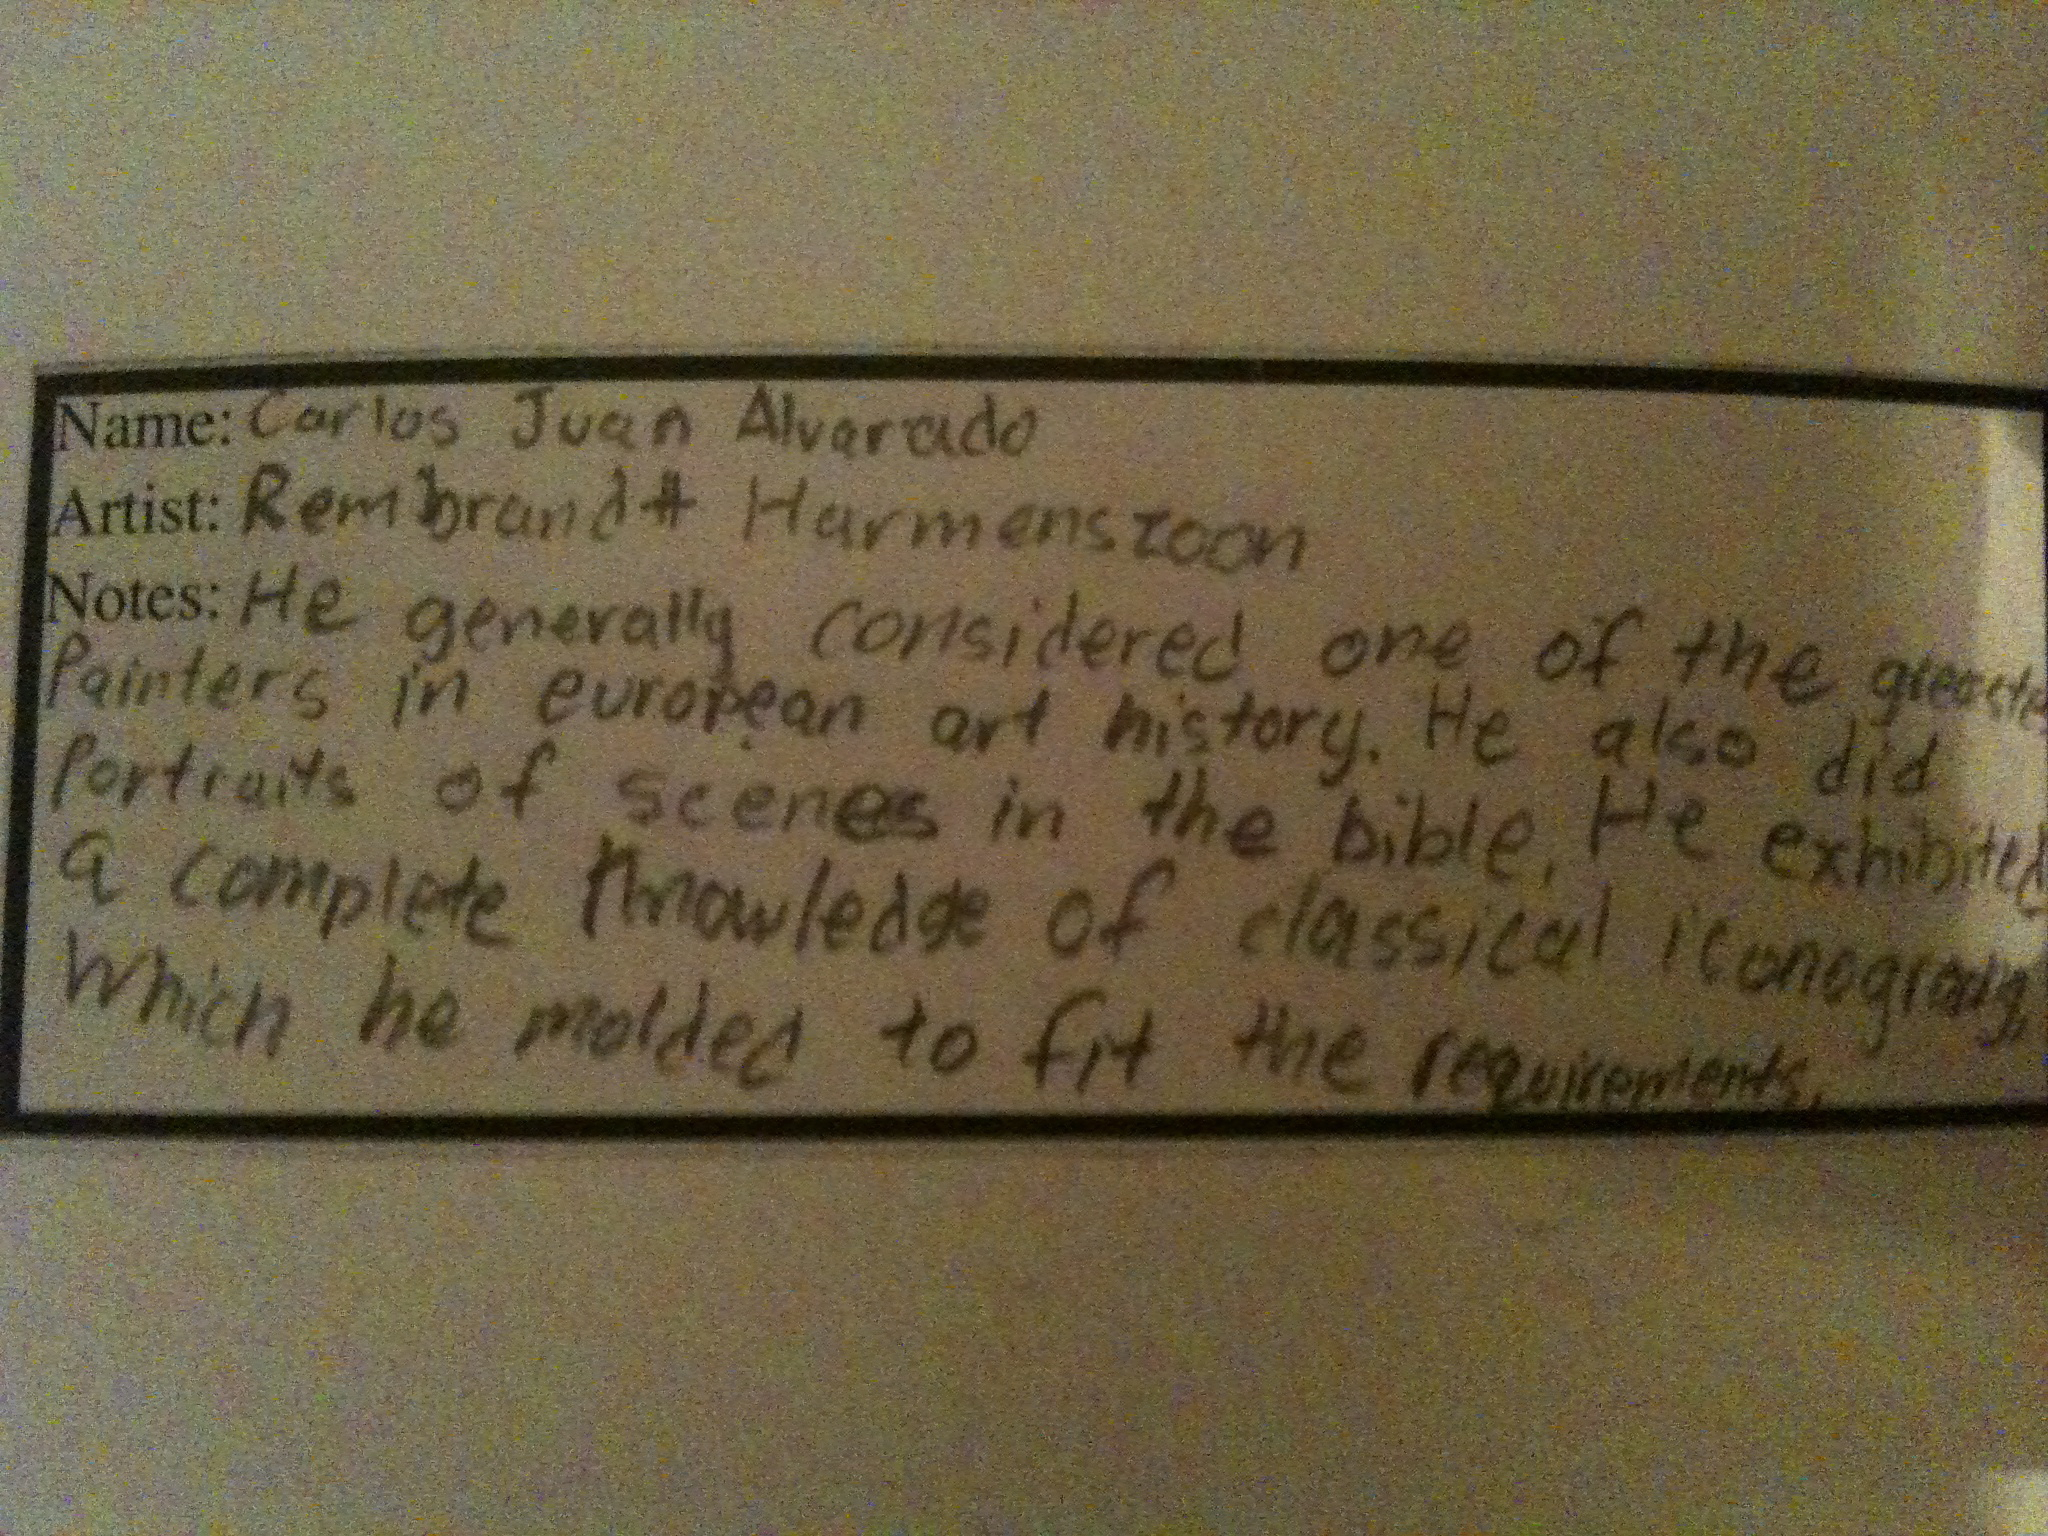 Name: Carlos Juan Alvarado
Artist: Rembrandt Harmenszoon
Notes: He generally considered one of the
Painters in european art history. He also did
Portraits of scenes in the bible. He exhibited
a complete knowledge of classical
which he molded to fit the requirements.